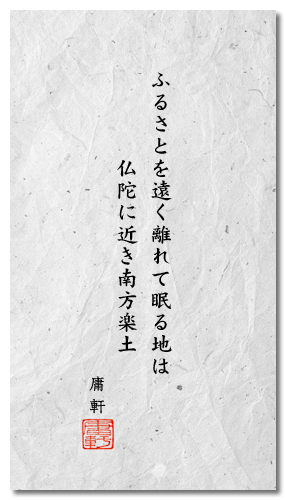 ふるさとを遠く離れて眠る地は
仏陀に近き南方楽土
庸軒
庸軒